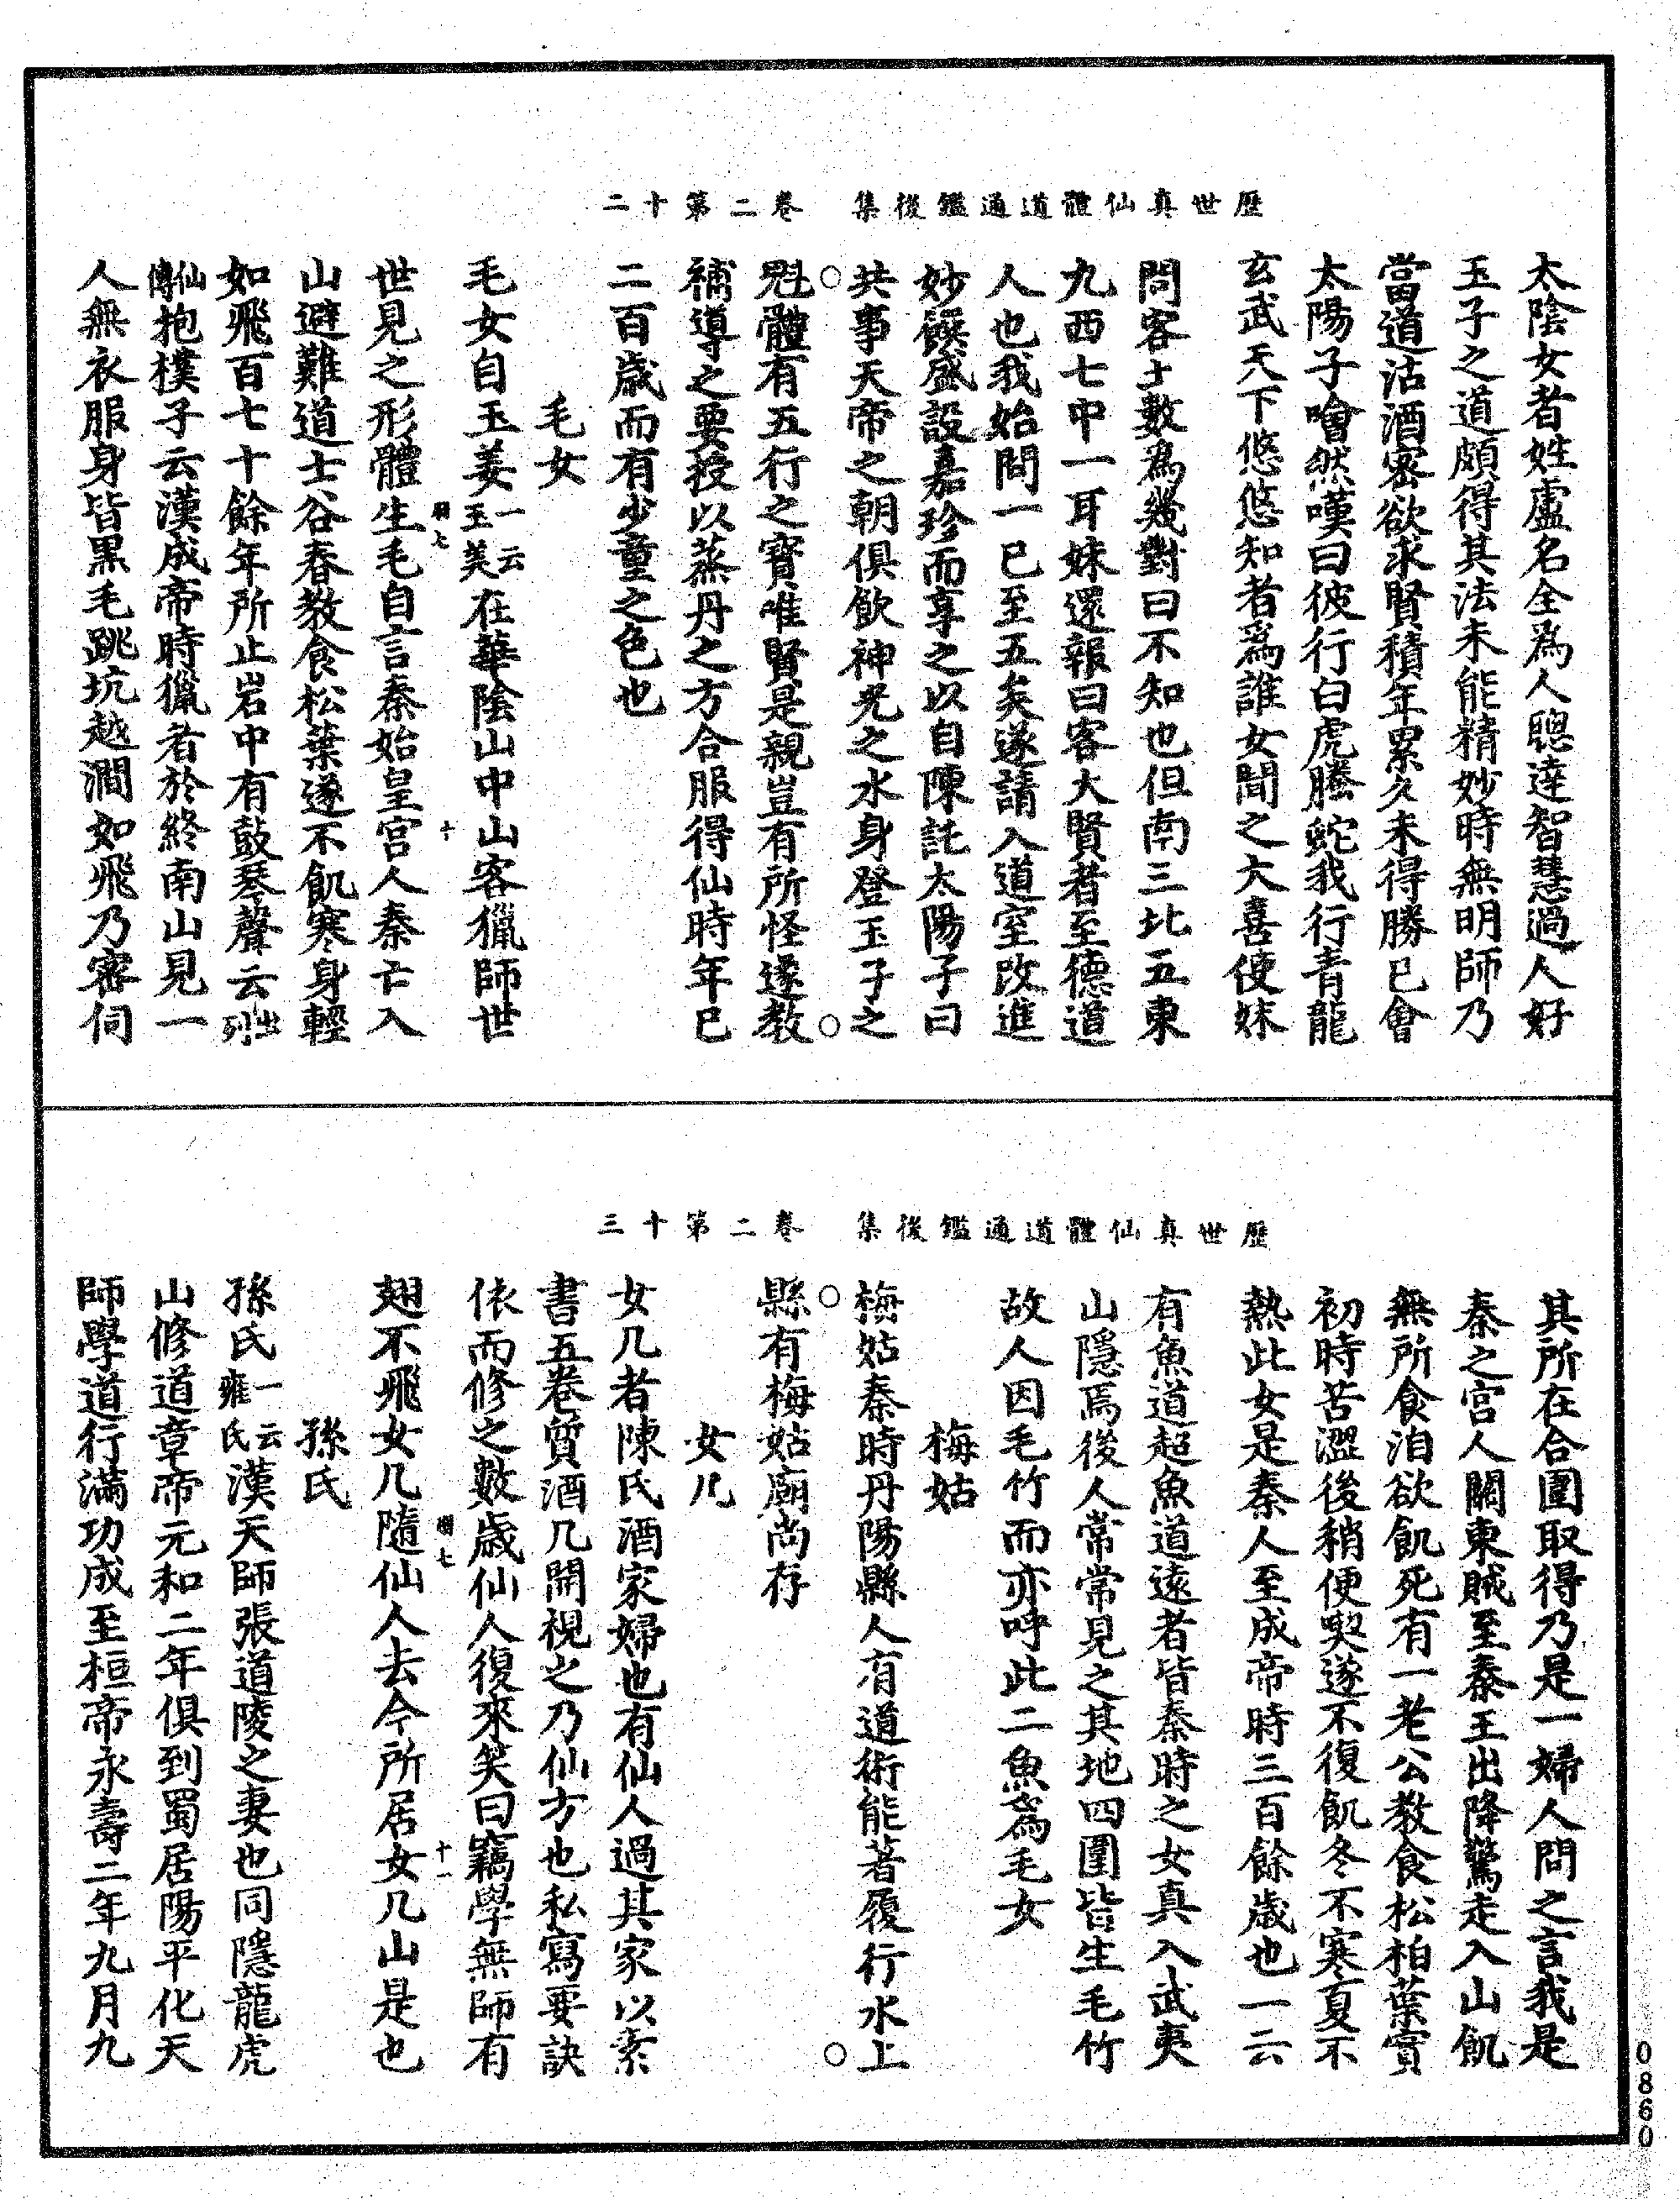 歷世真仙體道通鑑後集　卷二第十二
太陰女者姓盧名全爲人聰達智慧過人好
玉子之道頗得其法未能精妙時無明師乃
當道沽酒密欲求賢積年累久未得勝己會
太陽子喻然嘆曰彼行白虎螣蛇我行青龍
玄武天下悠悠知者爲誰女聞之大喜使妹
問客士數爲幾對曰不知也但南三北五東
九西七中一耳妹還報曰客大賢者至德道
人也我始問一已至五矣遂請入道室改進
妙饌盛設嘉珍而享之以自陳託太陽子曰
共事天帝之朝俱飲神光之水身登玉子之
魁體有五行之寶唯賢是親豈有所怪遂教
補導之要授以蒸丹之方合服得仙時年已
二百歲而有少童之色也
毛女
毛女自玉姜一云玉美在華陰山中山客獵師世
世見之形體生毛自言秦始皇宮人秦亡入
山避難道士谷春教食松葉遂不飢寒身輕
如飛百七十餘年所止岩中有鼓琴聲云出列
仙傳抱樸子云漢成帝時獵者於終南山見一
人無衣服身皆黑毛跳坑越澗如飛乃密伺
歷世真仙體道通鑑後集　卷二第十三
其所在合圍取得乃是一婦人問之言我是
秦之宮人關東賊至秦王出降驚走入山飢
無所食洎欲飢死有一老公教食松柏葉實
初時苦澀後稍便喫遂不復飢冬不寒夏不
熱此女是秦人至成帝時三百餘歲也一云
有魚道超魚道遠者皆秦時之女真入武夷
山隱焉後人常常見之其地四圍皆生毛竹
故人因毛竹而亦呼此二魚爲毛女
梅姑
梅姑秦時丹陽縣人有道術能著履行水上
縣有梅姑廟尚存
女几
女几者陳氏酒家婦也有仙人過其家以素
書五卷質酒几開視之乃仙方也私寫要訣
依而修之數歲仙人復來笑曰竊學無師有
翅不飛女几隨仙人去今所居女几山是也
孫氏
孫氏一云雍氏漢天師張道陵之妻也同隱龍虎
山修道章帝元和二年俱到蜀居陽平化天
師學道行滿功成至桓帝永壽二年九月九
0860